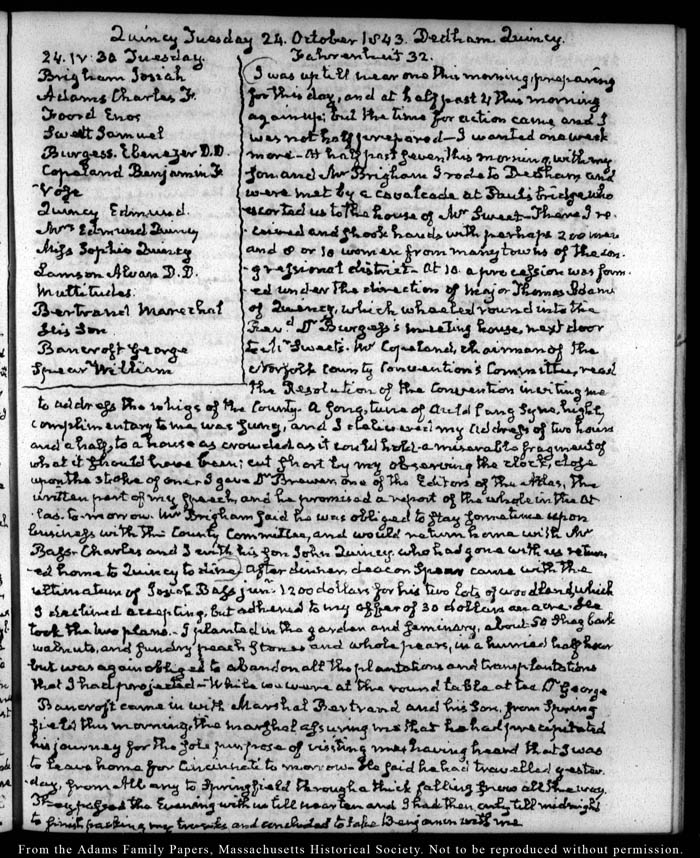 Quincy Tuesday 24. October 1843. Dedham. Quincy.
24. IV: 30 Tuesday.
Brigham Josiah
Adams Charles F.
Foord Enos
Swett Samuel
Burgess. Ebenezer D.D.
Copeland Benjamin F.
Vose
Quincy Edmund.
Mrs Edmund Quincy
Miss Sophia Quincy
Lamson Alvan D.D.
Multitudes.
Bertrand Marechal
His Son.
Bancroft George
Spear William
Fahrenheit 32.
I was up till near one this morning, preparing
for this day, and at half past 4 this morning
again up; but the time for action came and I
was not half prepared— I wanted one week
more— At half past seven this morning, with my
Son and Mr Brigham I rode to Dedham and
were met by a cavalcade at Paul's bridge who
escorted us to the house of Mr Sweet— There I re-
ceived and shook hands with perhaps 200 men
and 8 or 10 women from many towns of the con-
gressional district— At 10. a procession was form-
ed under the direction of Major Thomas Adams
of Quincy, which wheeled round into the
Revd Dr Burgess's meeting house, next door
to Mr Sweets. Mr Copeland, chairman of the
Norfolk County Convention's Committee, read
the Resolution of the Convention inviting me
to address the whigs of the County. A song, tune of Auld Lang Syne, highly
complimentary to me was sung, and I delivered my Address of two hours
and a half, to a house as crowded as it could hold— a miserable fragment of
what it should have been; cut short by my observing the clock, close
upon the stroke of one. I gave Dr Brewer, one of the Editors of the Atlas, the
written part of my speech, and he promised a report of the whole in the At-
las to-morrow. Mr Brigham said he was obliged to stay sometime upon
business with the County Committee, and would return home with Mr
Bass. Charles and I with his son John Quincy, who had gone with us return-
ed home to Quincy to dine. After dinner, deacon Spear came with the
ultimatum of Josiah Bass junr. 1200 dollars for his two lots of woodland, which
I declined accepting, but adhered to my offer of 30 dollars an acre. He
took the two plans.— I planted in the garden and seminary, about 50 shagbark
walnuts, and sundry peach stones and whole pears, in a hurried half hour
but was again obliged to abandon all the plantations and transplantations
that I had projected— While we were at the round table at tea Dr George
Bancroft came in with Marshal Bertrand and his Son, from Spring-
field this morning; the marshal assuring me that he had precipitated
his journey for the sole purpose of visiting me, having heard that I was
to leave home for Cincinnati to morrow. He said he had travelled yester-
day, from Albany to Springfield through a thick falling snow all the way.
They passed the Evening with us till near ten and I had then only till midnight
to finish packing my trunks and concluded to take Benjamin with me
From the Adams Family Papers, Massachusetts Historical Society. Not to be reproduced without permission.